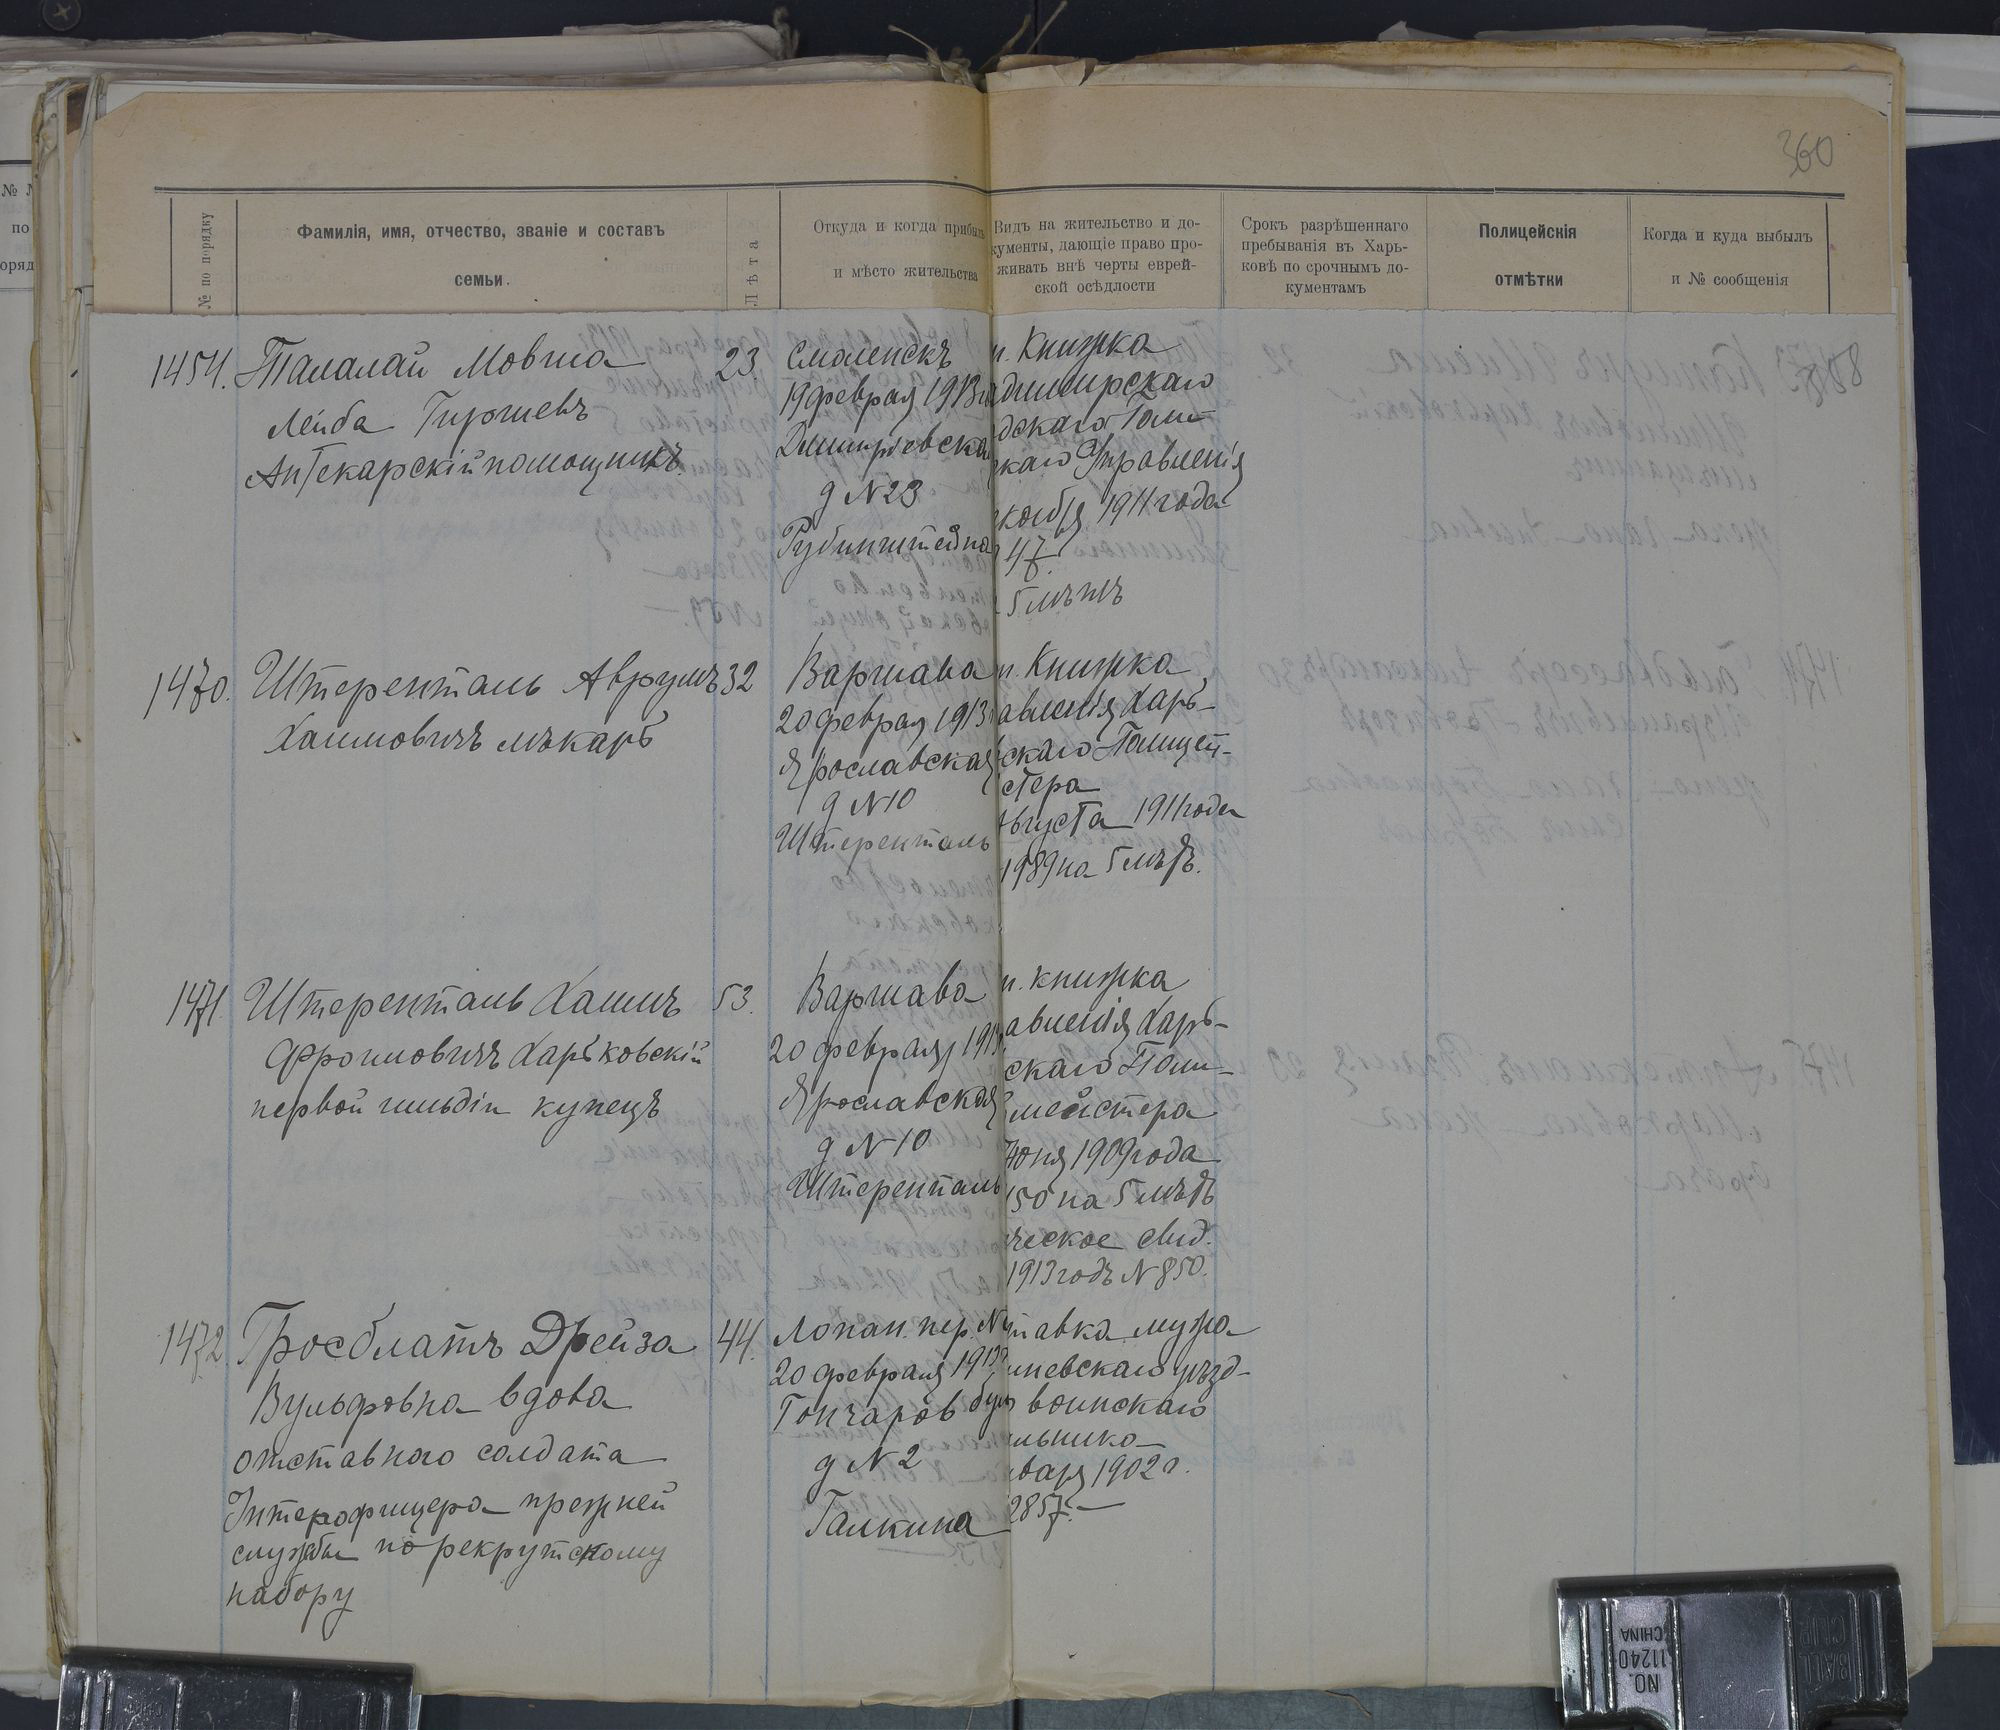 360
№ по порядку
Фамилія, имя, отчество, званіе и составъ
семьи.
Лѣта
Откуда и когда прибылъ
и мѣсто жительства
Видъ на жительство и до-
кументы, дающіе право про-
живать внѣ черты еврей-
ской осѣдлости
Срокъ разрѣшеннаго
пребыванія въ Харь-
ковѣ по срочнымъ до-
кументамъ
Полицейскія
отмѣтки
Когда и куда выбылъ
и № сообщенія
1454. Талалай Мовша
Лейба Гиршевъ
Аптекарскій помощникъ
23
Смоленскъ
19 февраля 1913
Дмитріевска
д N 23
Рубинштейна
п. Книжка
адимирскаго
дскаго Поли-
скаго Управленія
1911 года
47.
5 лѣтъ
1470. Штеренталь Аврумъ
Хаимовичъ лѣкарь
32
Варшава
20 февраля 1913
Ярославская
д N 10
Штеренталь
п. Книжка
авленія Харь-
скаго Полицей-
стера
Августа 1911 года
1989 на 5 лѣтъ.
1471. Штеренталь Хаимъ
Фроимовичъ Харьковскій
первой гильдіи купецъ
53.
Варшава
20 февраля 191
Ярославская
д N 10
Штеренталь
п. книжка
авленія Харь-
скаго Поли-
мейстера
Юня 1909 года
150 на 5 лѣтъ
ческое свид.
1913 годъ N 850.
1472. Гросблатъ Дрейза
Вульфовна вдова
отставного солдата
Інтерофицера прежней
службы по рекрутскому
набору
44.
Лопан. пер. N
20 февраля 1913
Гончаров бул
д N 2
Галкина
тавка мужа
шевскаго уѣзд-
воинскаго
льника
варя 1902 г.
2857.-
№
по
поряд
NO.
11240
CHINA
BALL
CLIP